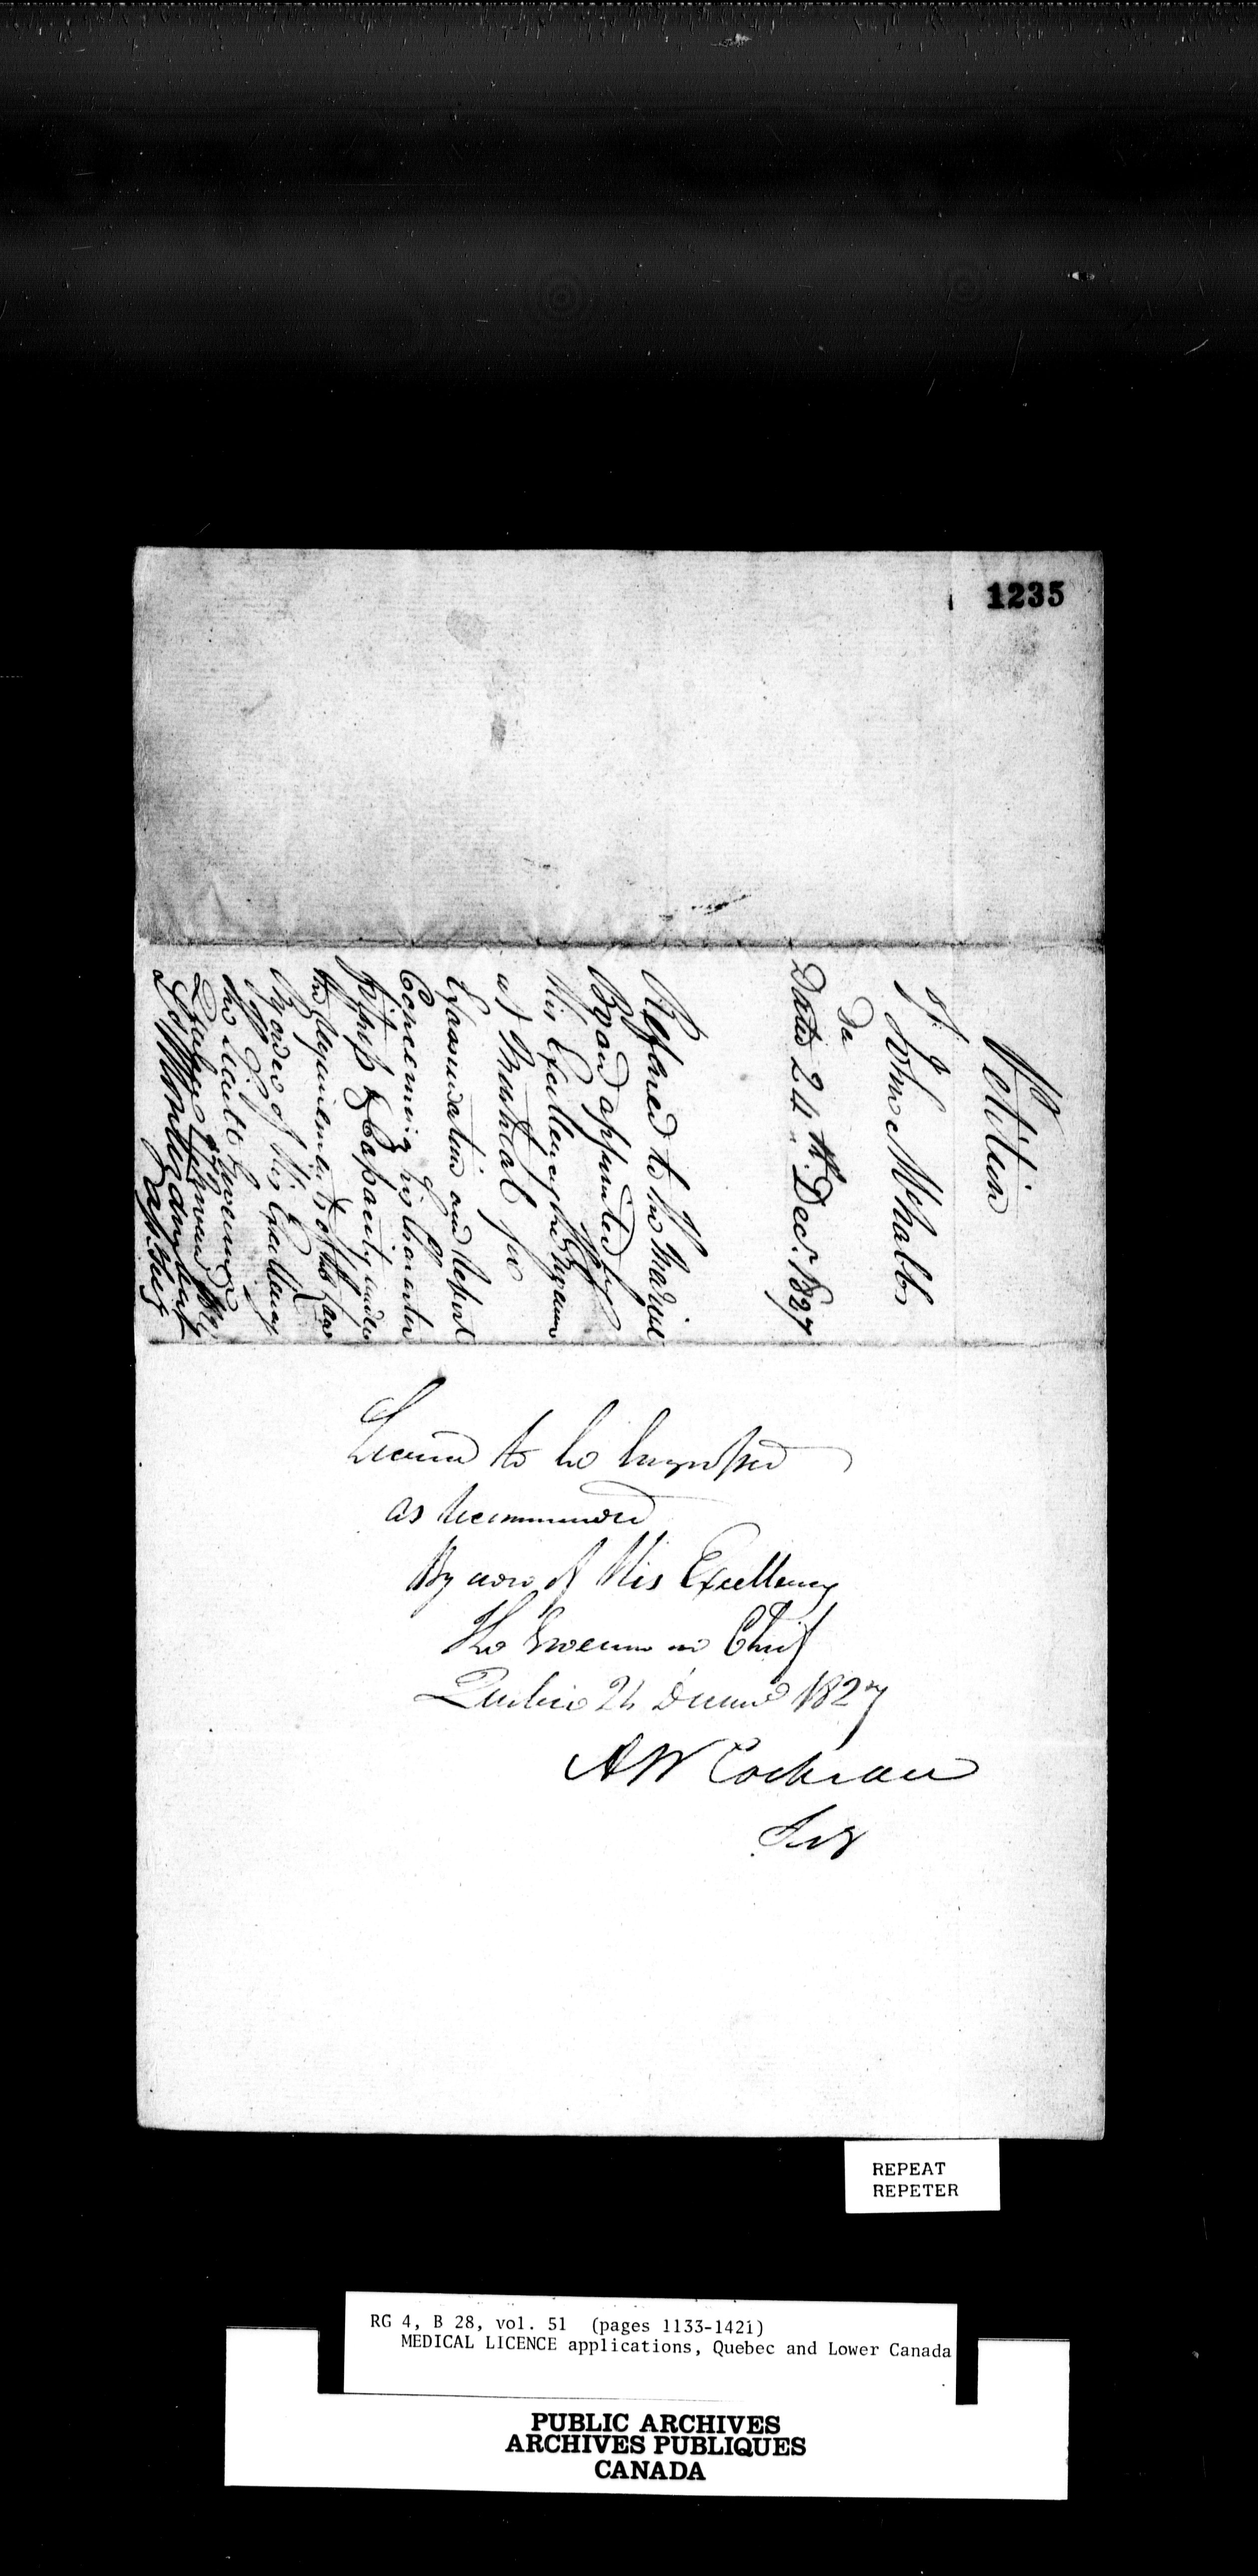 1235
Petition
of
John McNabb
Dated 24th Decr. 1827
Referred to the Medical
Board appointed by
His Excellency the
at Montreal for
Examination and Report
Concerning his Character
Fitness & Capacity under
the requirements of the Law
By order of His Excellency
the Lieut Governor
Quebec
Montizambert
to be
as recommended
By order of His Excellency
The Governor in Chief
Quebec 24 1827
A W Cochran
Secy
REPEAT
REPETER
RG 4, B 28, vol. 51 (pages 1133-1421)
MEDICAL LICENCE applications, Quebec and Lower Canada
PUBLIC ARCHIVES
ARCHIVES PUBLIQUES
CANADA